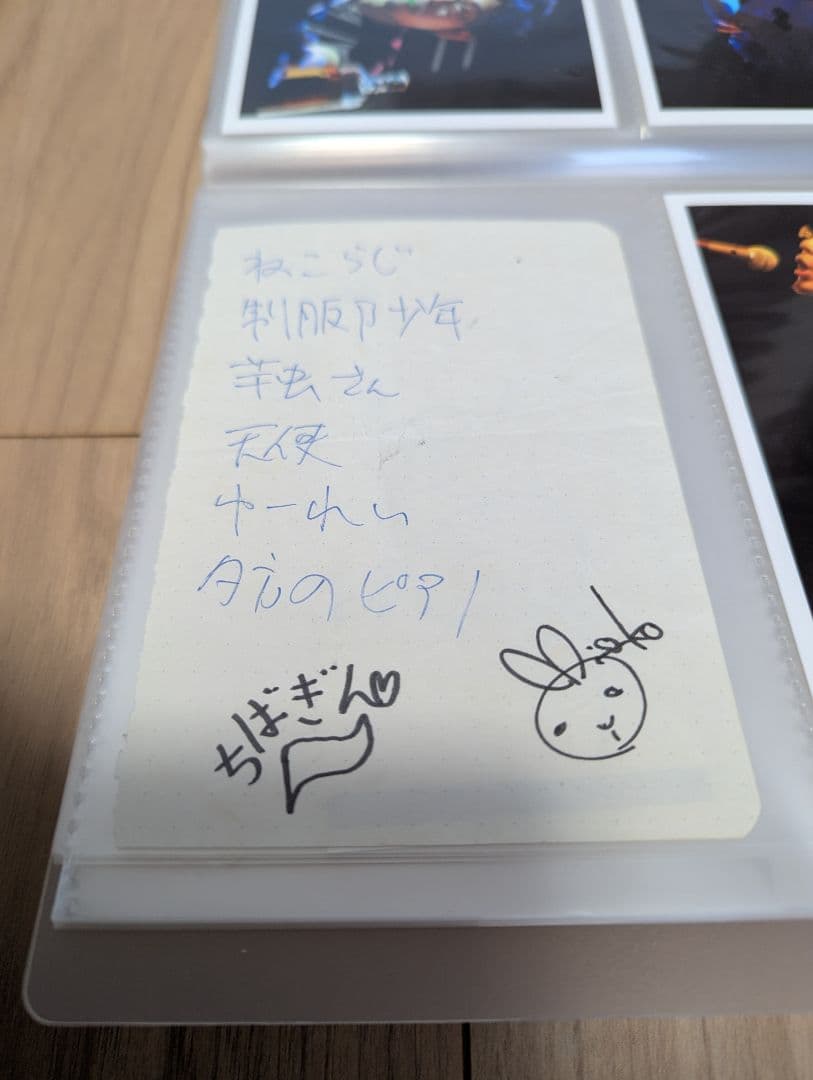 ねこらじ
制服卩少年
芋虫さん
天使
ゆーれい
夕方のピアノ
ちばぎん♡
Mioko